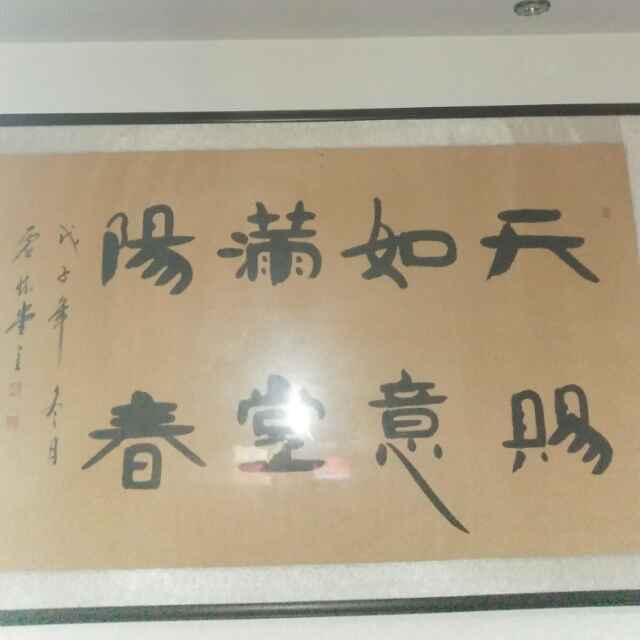 天賜
如意
滿堂
陽春
戊子年冬月